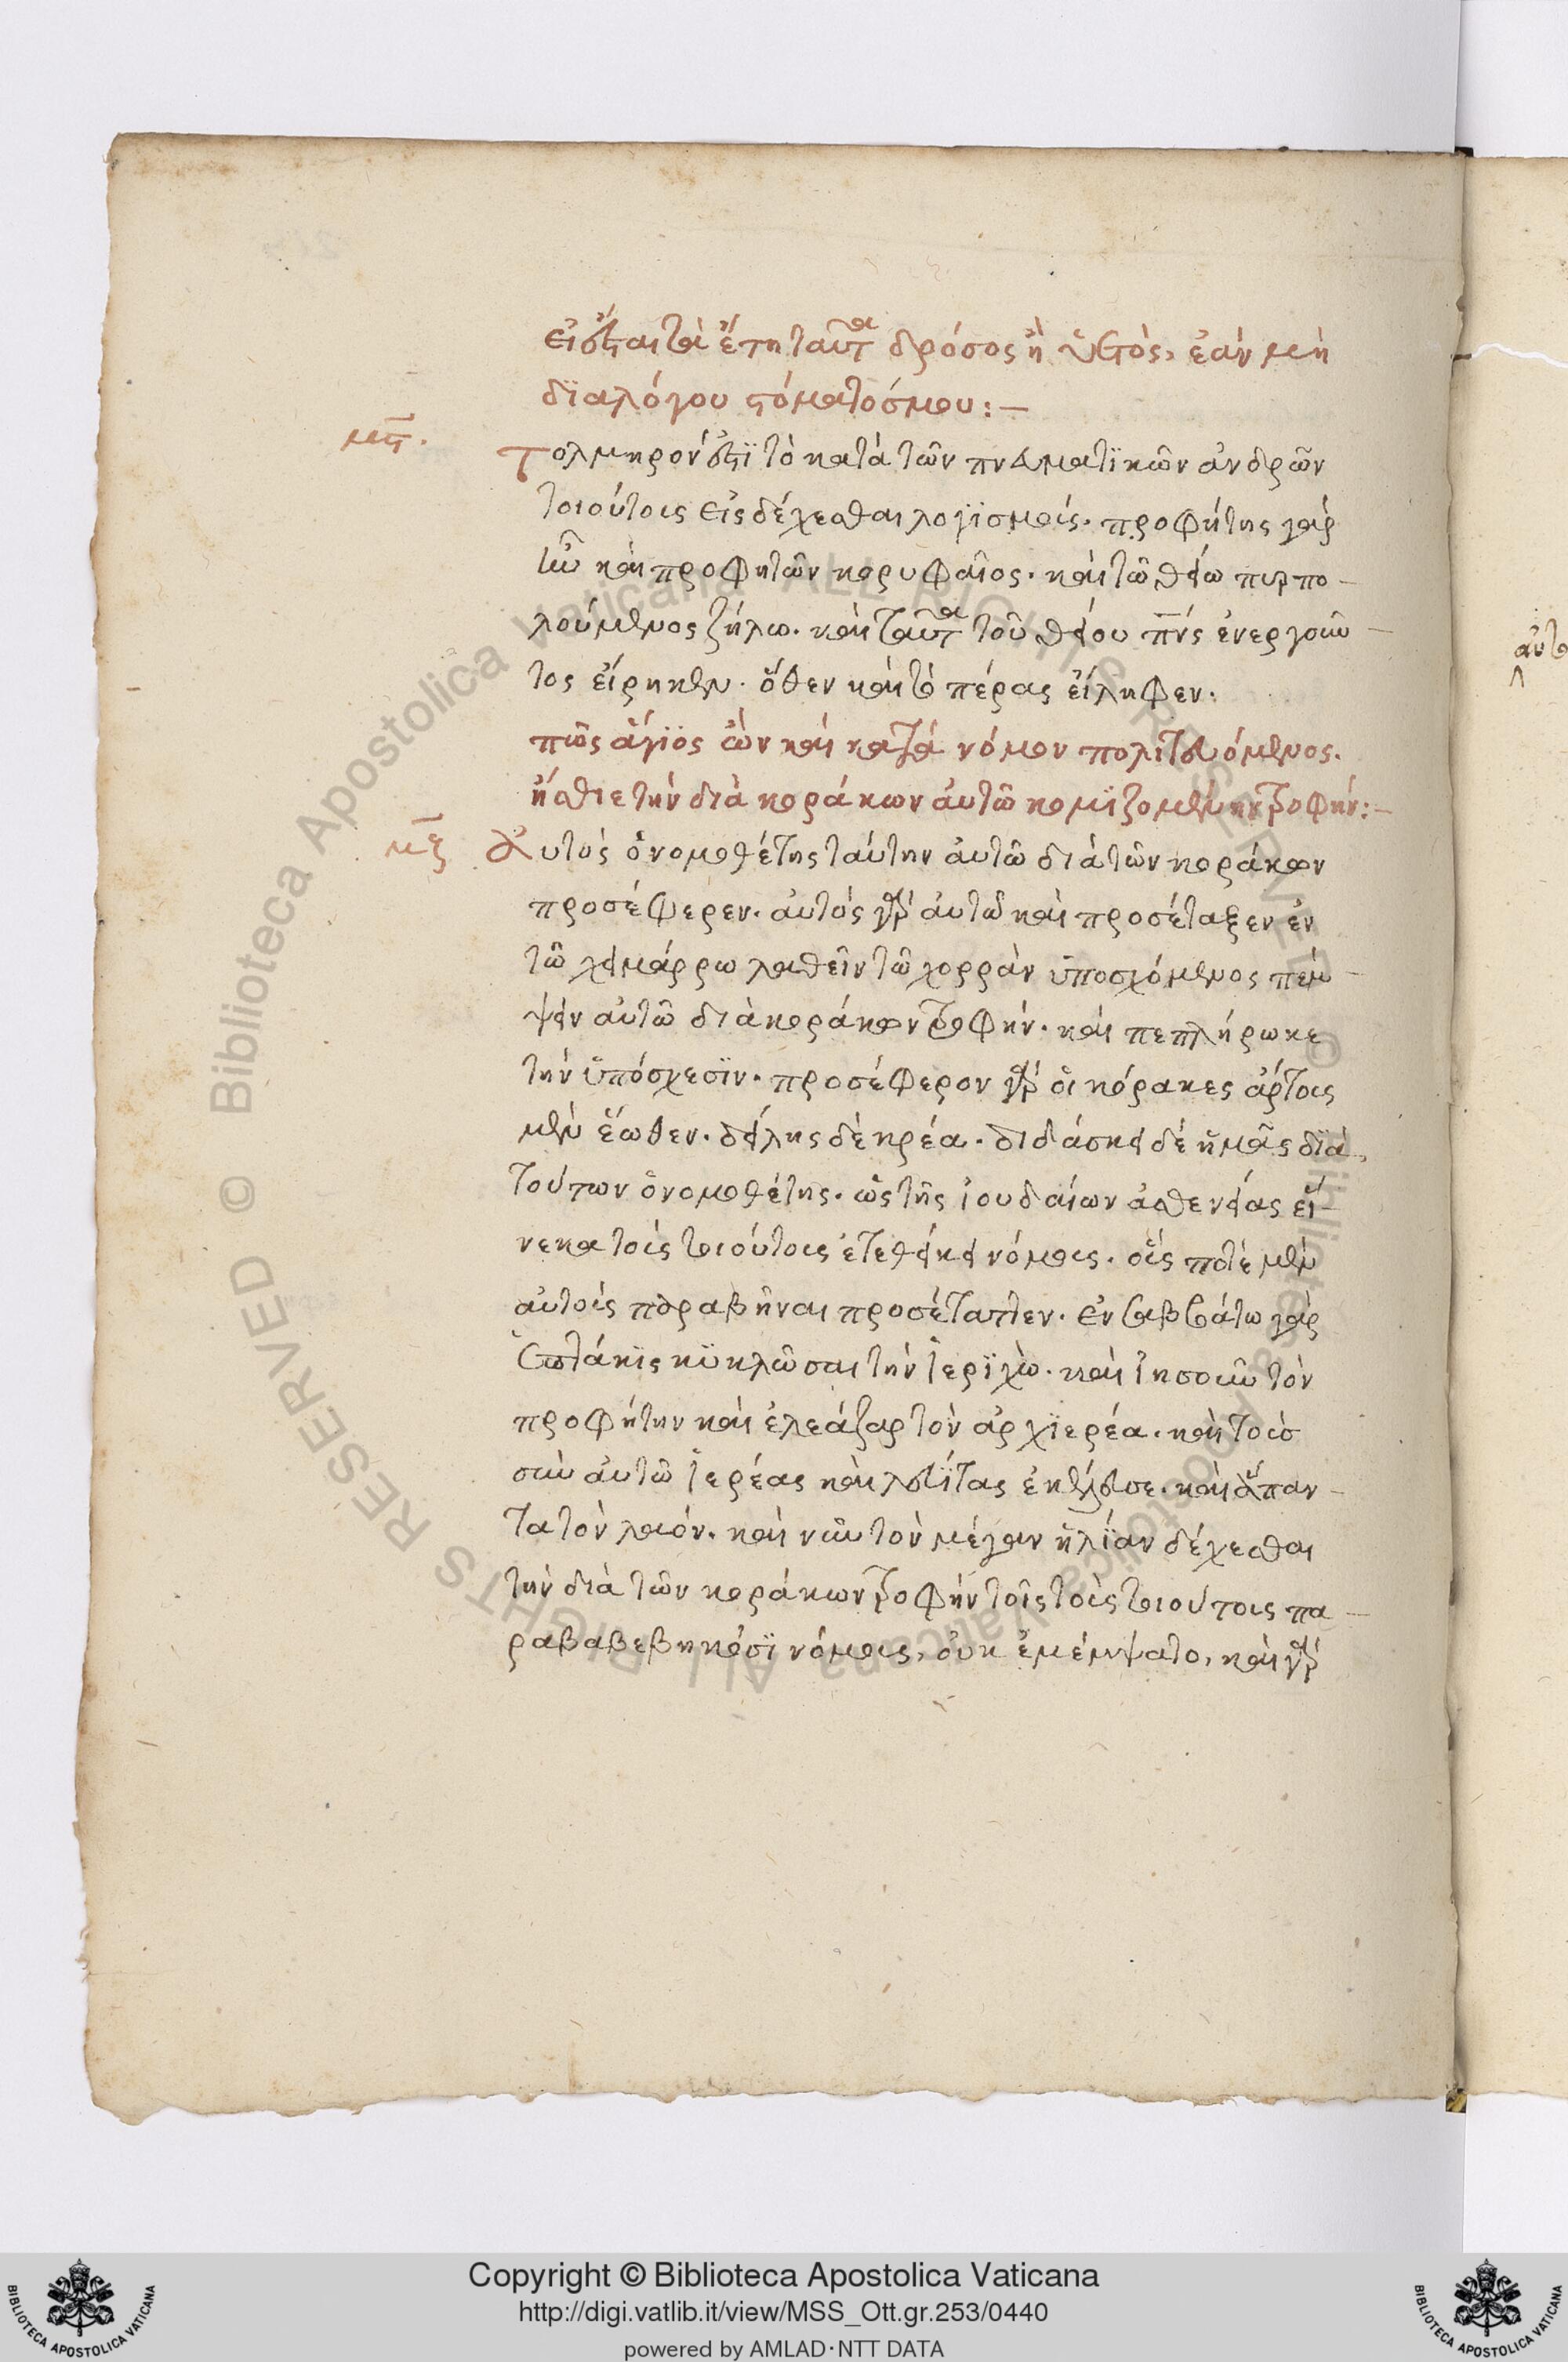 εἰ ἔσται τὰ ἔτη ταῦτα δρόσος ἢ ὑετὸς, ἐὰν μὴ
διαλόγου στόματόσμου:—
μς.
Τολμηρόν ἐστϊ τὸ κατὰ τῶν πνευματϊκῶν ἀνδρῶν
τοιούτοις εἰσδέχεσθαι λογϊσμοίς. προφήτης γὰρ
ἦν καὶ προφητῶν κορυφαῖος. καὶ τῶ θείω πυρπο–
λούμενος ζήλω. καὶ ταῦτα τοῦ θείου πνς ἐνεργοῦν–
τος εἴρηκεν. ὅθεν καὶ τὸ πέρας εἴληφεν:
πῶς ἅγϊος ὢν καὶ κατὰ νόμον πολιτευόμενος.
ἤσθιε τὴν διὰ κοράκων ἀυτῶ κομϊζομένην τροφήν:–
μζ
Αυτὸς ὁνομοθέτης ταύτην ἀυτῶ διὰ τῶν κοράκων
προσέφερεν. ἀυτὸς γὰρ ἀυτῶ καὶ προσέταξεν ἐν
τῶ χειμάρρω λαθεῖν τῶ χορρὰν ὑποσχόμενος πέμ–
ψειν αὐτῶ διὰ κοράκων τροφήν. καὶ πεπλήρωκε
τὴν ὑπόσχεσϊν. προσέφερον γὰρ οἱ κόρακες ἄρτοις
μὲν ἕωθεν. δείλης δὲ κρέα. διδάσκει δὲ ἡμᾶς δϊὰ
τούτων ὁνομοθέτης. ὡς τῆς ἰουδαίων ἀσθενείας εἵ–
νεκα τοὶς τοιούτοις ἐτεθείκει νόμοις. οἷς ποτὲ μὲν
αὐτοὶς παραβῆναι προσέταττεν. ἐν σαββάτω γὰρ
ἑπτάκϊς κϋκλῶσαι τὴν ἱερϊχὼ. καὶ ἰησοῦν τὸν
προφήτην καὶ ἐλεάζαρ τὸν ἀρχϊερέα. καὶ τοὺσ
σὺν ἀυτῶ ἱερέας καὶ λευΐτας ἐκέλευσε. καὶ ἅπαν–
τα τὸν λαόν. καὶ νῦν τὸν μέγαν ἡλΐαν δέχεσθαι
τὴν διὰ τῶν κοράκων τροφὴν τοῖς τοὶς τοιούτοις πα–
ραβαβεβηκόσϊ νόμοις, οὐκ ἐμέμψατο, καὶ γὰρ
αὐτο
Copyright © Biblioteca Apostolica Vaticana
http://digi.vatlib.it/view/MSS_Ott.gr.253/0440
powered by AMLAD·NTT DATA